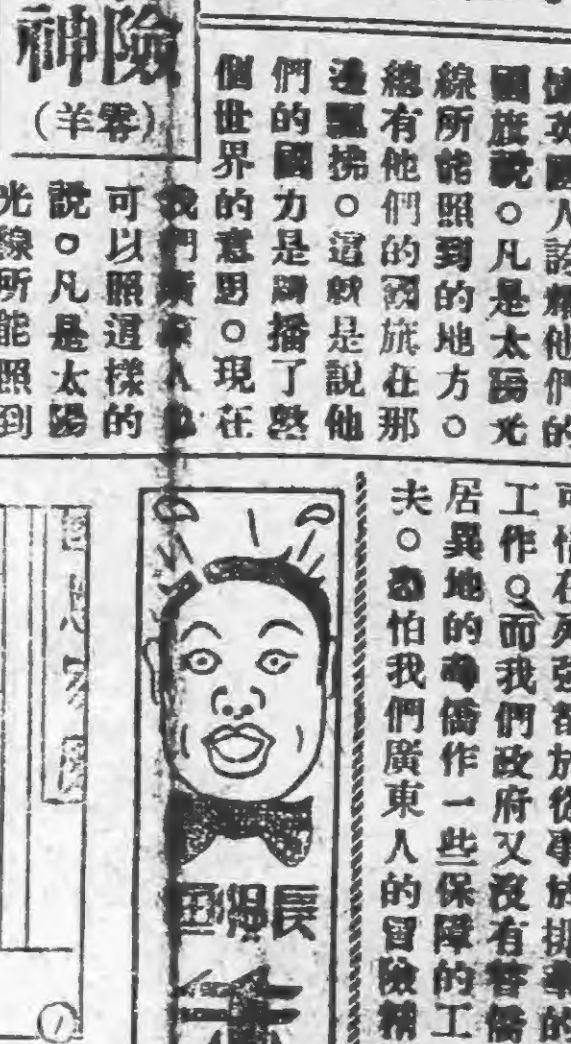 險
神
(零羊)
英國人誇耀他們的
國旗說。凡是太陽光
線所能照到的地方。
總有他們的國旗在那
邊飄拂。這就是說他
們的國力是廣播了整
個世界的意思。現在
我們廣東人也
可以照這樣的
說。凡是太陽
光線所能照到
可惜在列強都於從事於排華的
工作。而我們政府又沒有替僑
居異地的華僑作一些保障的工
夫。恐怕我們廣東人的冒險精